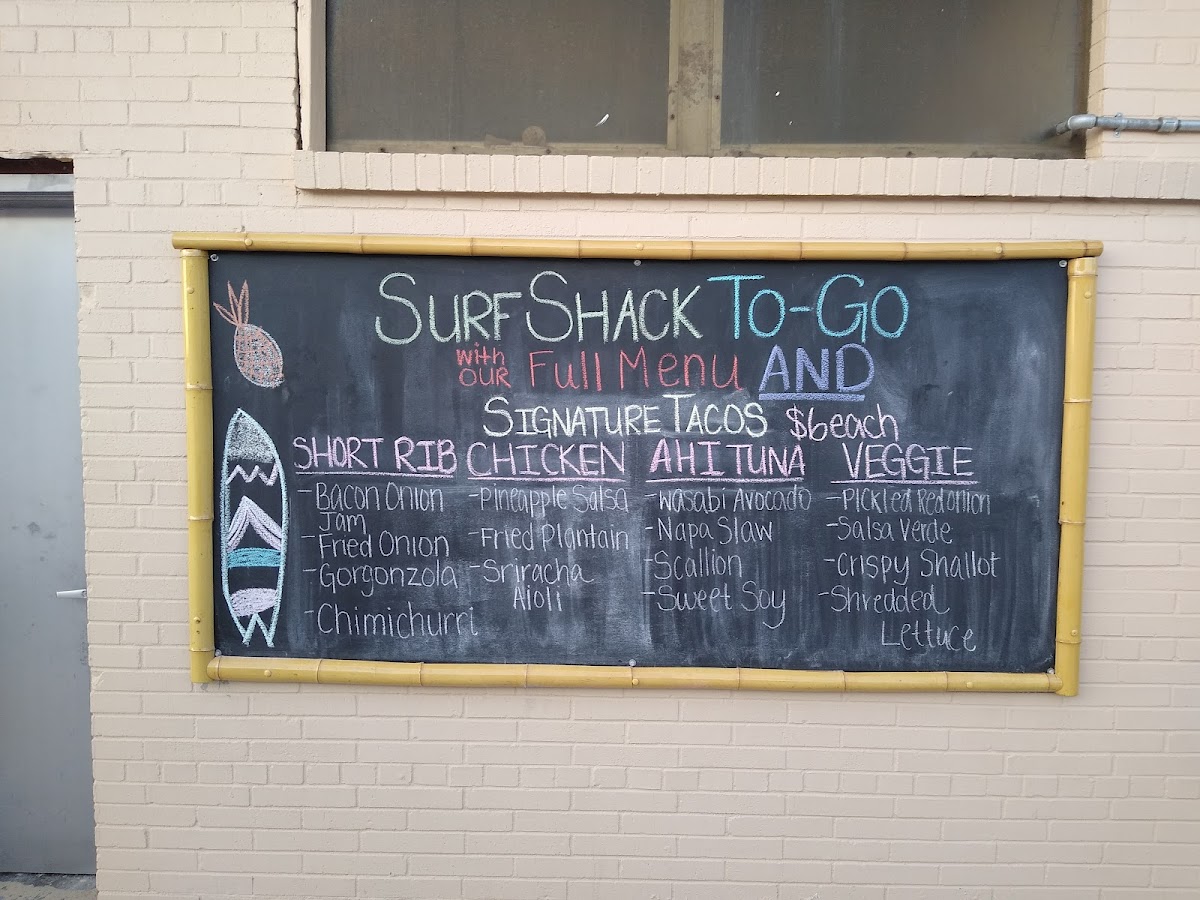 SURF SHACK TO-GO
with OUR Full Menu AND
SIGNATURE TACOS $6each
SHORT RIB
-Bacon Onion
Jam
-Fried Onion
-Gorgonzola
-Chimichurri
CHICKEN
-Pineapple Salsa
-Fried Plantain
-Sriracha
Aioli
AHI TUNA
-Wasabi Avocado
-Napa Slaw
-Scallion
-Sweet Soy
VEGGIE
-Pickled Red Onion
-Salsa Verde
-Crispy Shallot
-Shredded
Lettuce